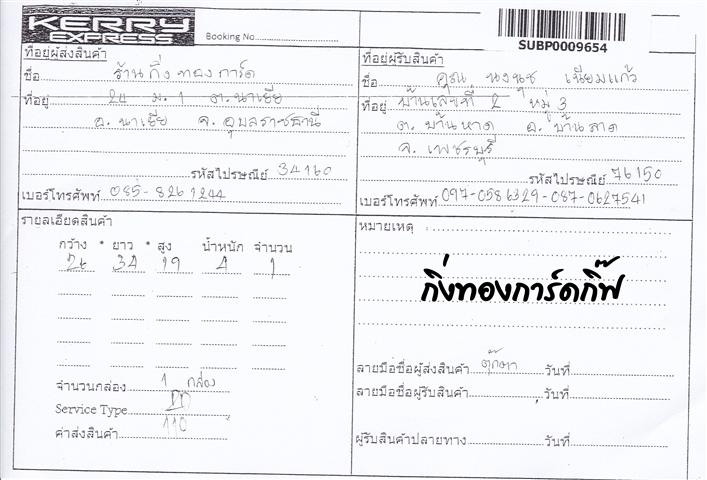 KERRY
EXPRESS
Booking No
SUBP0009654
ที่อยู่ผู้ส่งสินค้า
ชื่อ ร้านกิ่งทองการ์ด
ที่อยู่ 24 ม.1 ต.นาเยีย
อ.นาเยีย จ.อุบลราชธานี
รหัสไปรษณีย์ 34160
เบอร์โทรศัพท์ 085-8261244
ที่อยู่ผู้รับสินค้า
ชื่อ คุณ นงนุช เนียมแก้ว
ที่อยู่ บ้านเลขที่ 2 หมู่ 3
ต.บ้านหาด อ.บ้านลาด
จ.เพชรบุรี
รหัสไปรษณีย์ 76150
เบอร์โทรศัพท์ 097-0586329-087-0627541
รายละเอียดสินค้า
กว้าง * ยาว * สูง น้ำหนัก จำนวน
24 34 19 4 1
จำนวนกล่อง 1 กล่อง
Service Type
ค่าส่งสินค้า 110
หมายเหตุ :
กิ่งทองการ์ดกิ๊ฟ
ลายมือชื่อผู้ส่งสินค้า ตุ๊กตา วันที่
ลายมือชื่อผู้รับสินค้า วันที่
ผู้รับสินค้าปลายทาง วันที่